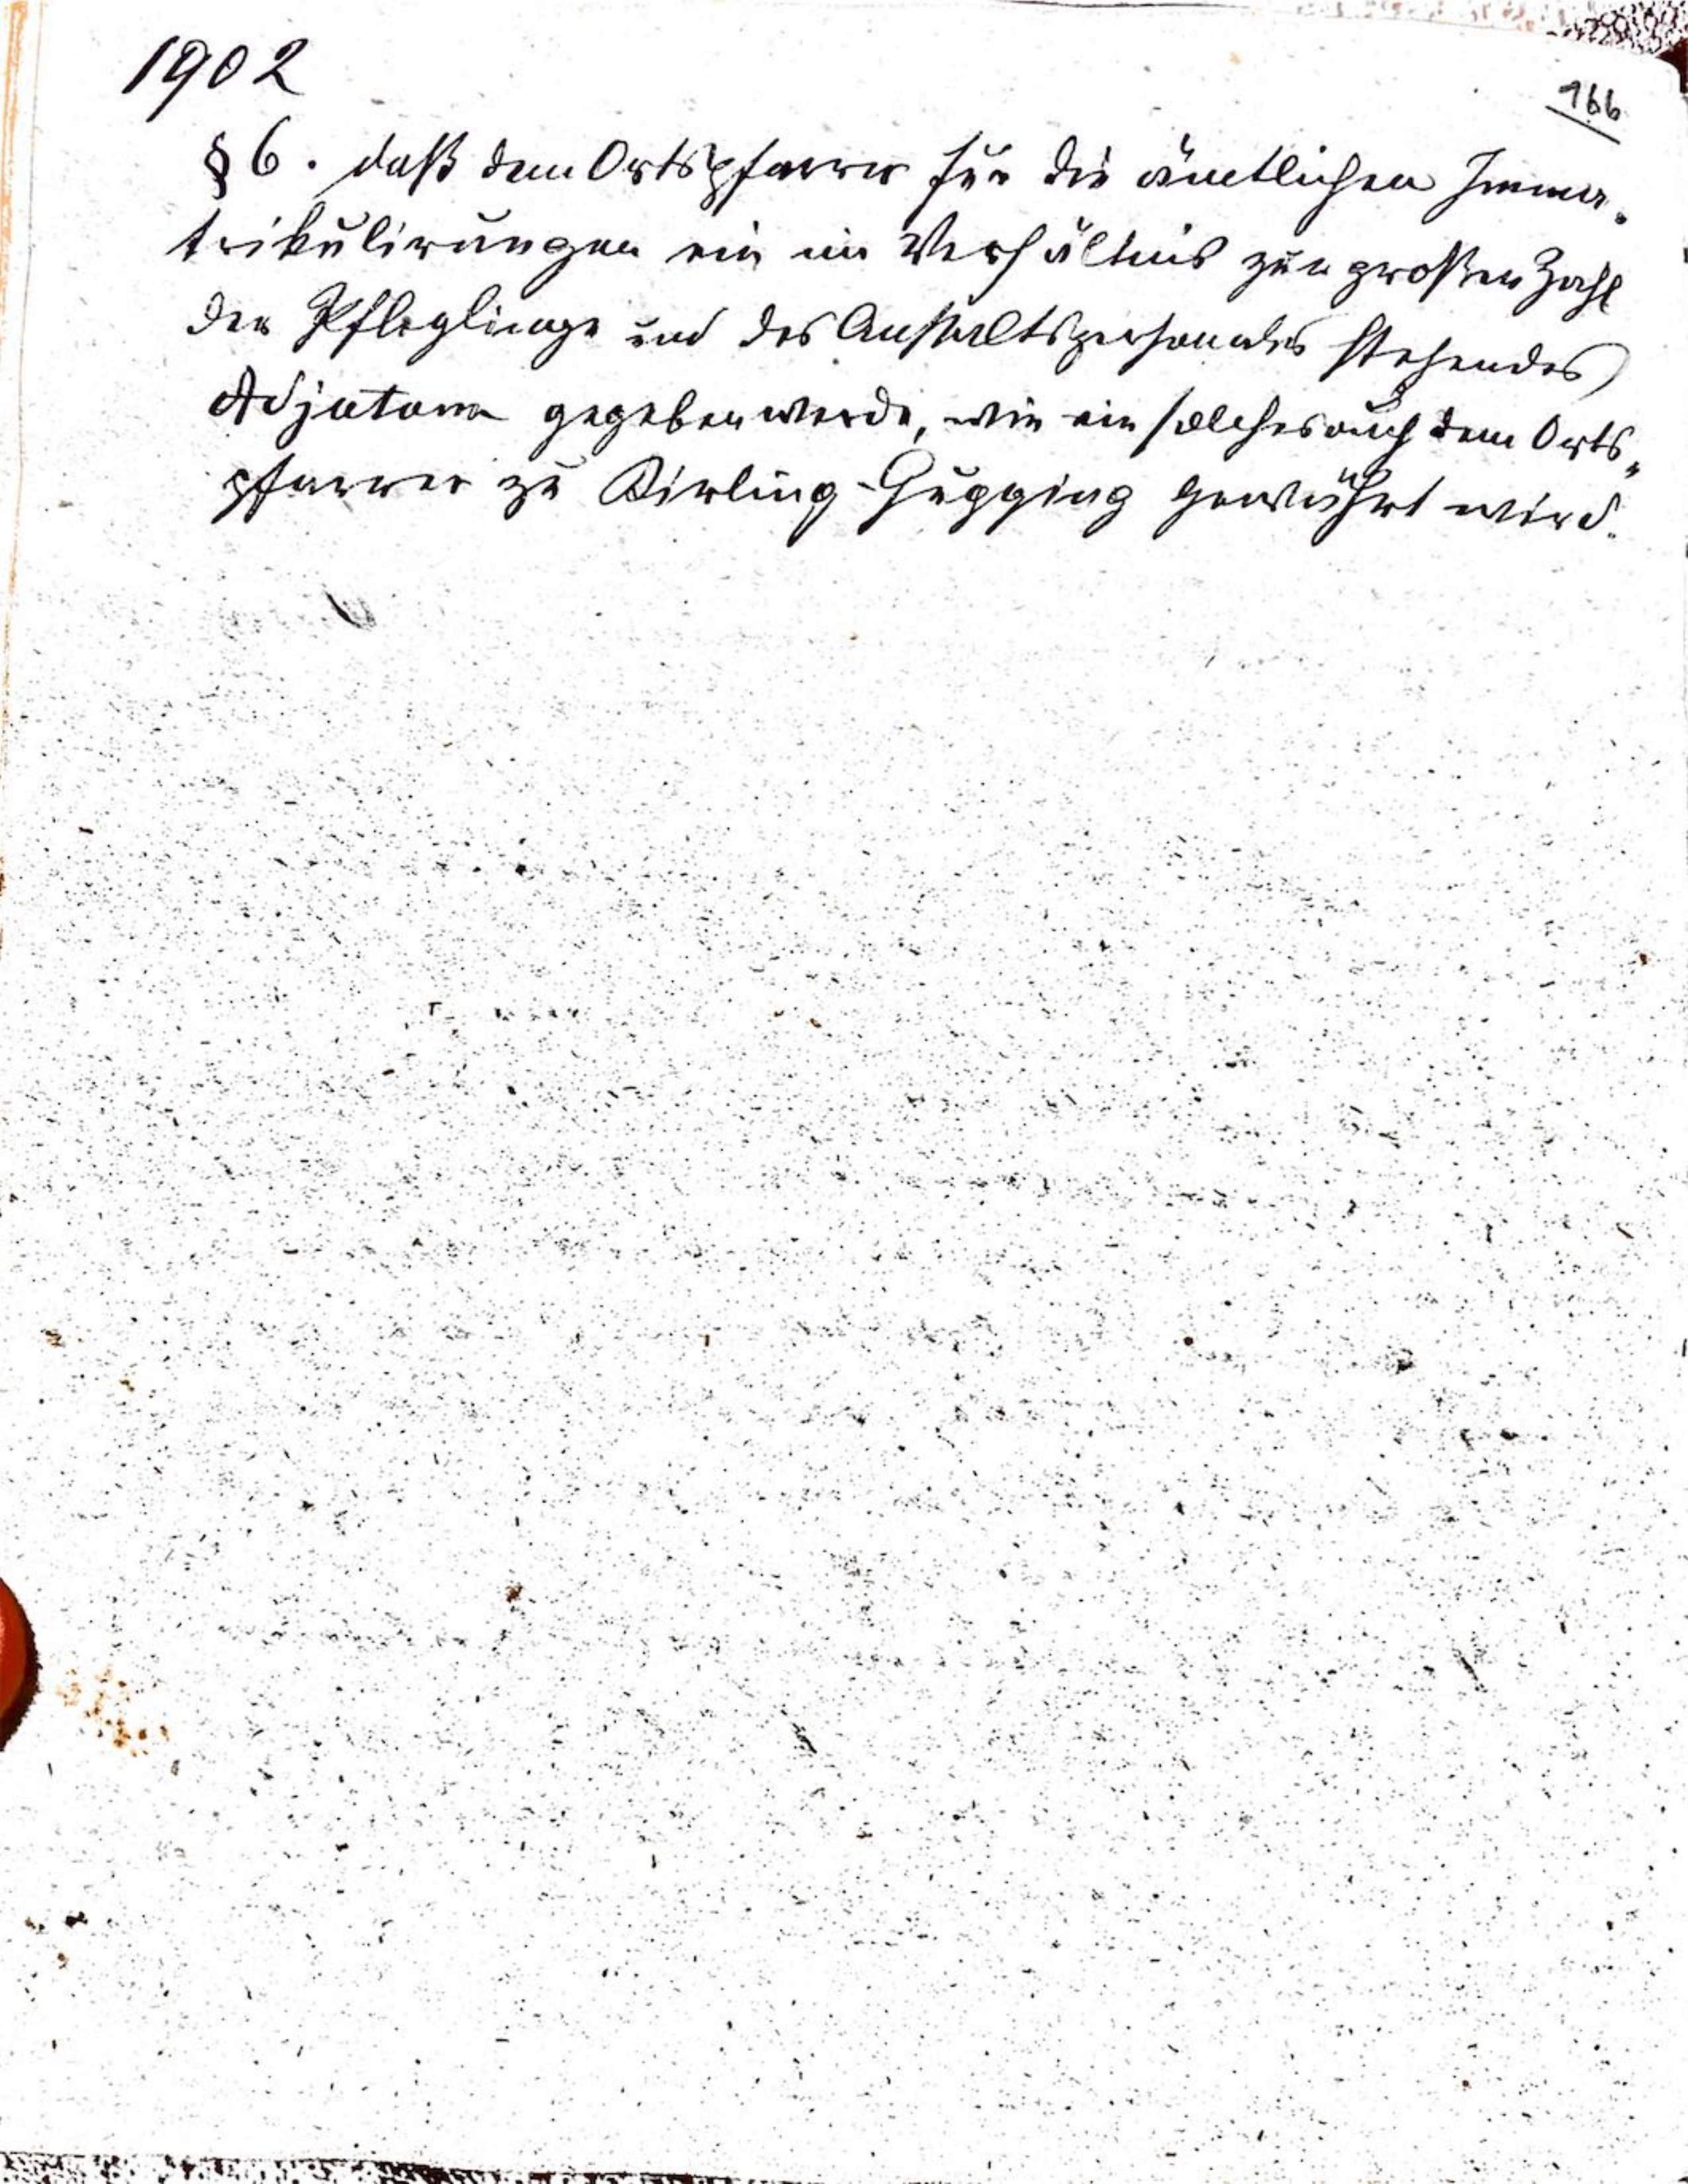 1902
166
§ 6. daß dem Ortspfarrer für die ämtlichen Imma-
trikulirungen ein im Verhältnis zur großen Zahl
der Pfleglinge und des Anstaltspersonales stehendes
Adjutum gegeben werde, wie ein solches auch dem Orts-
pfarrer zu Kirling-Gugging gewährt wird.